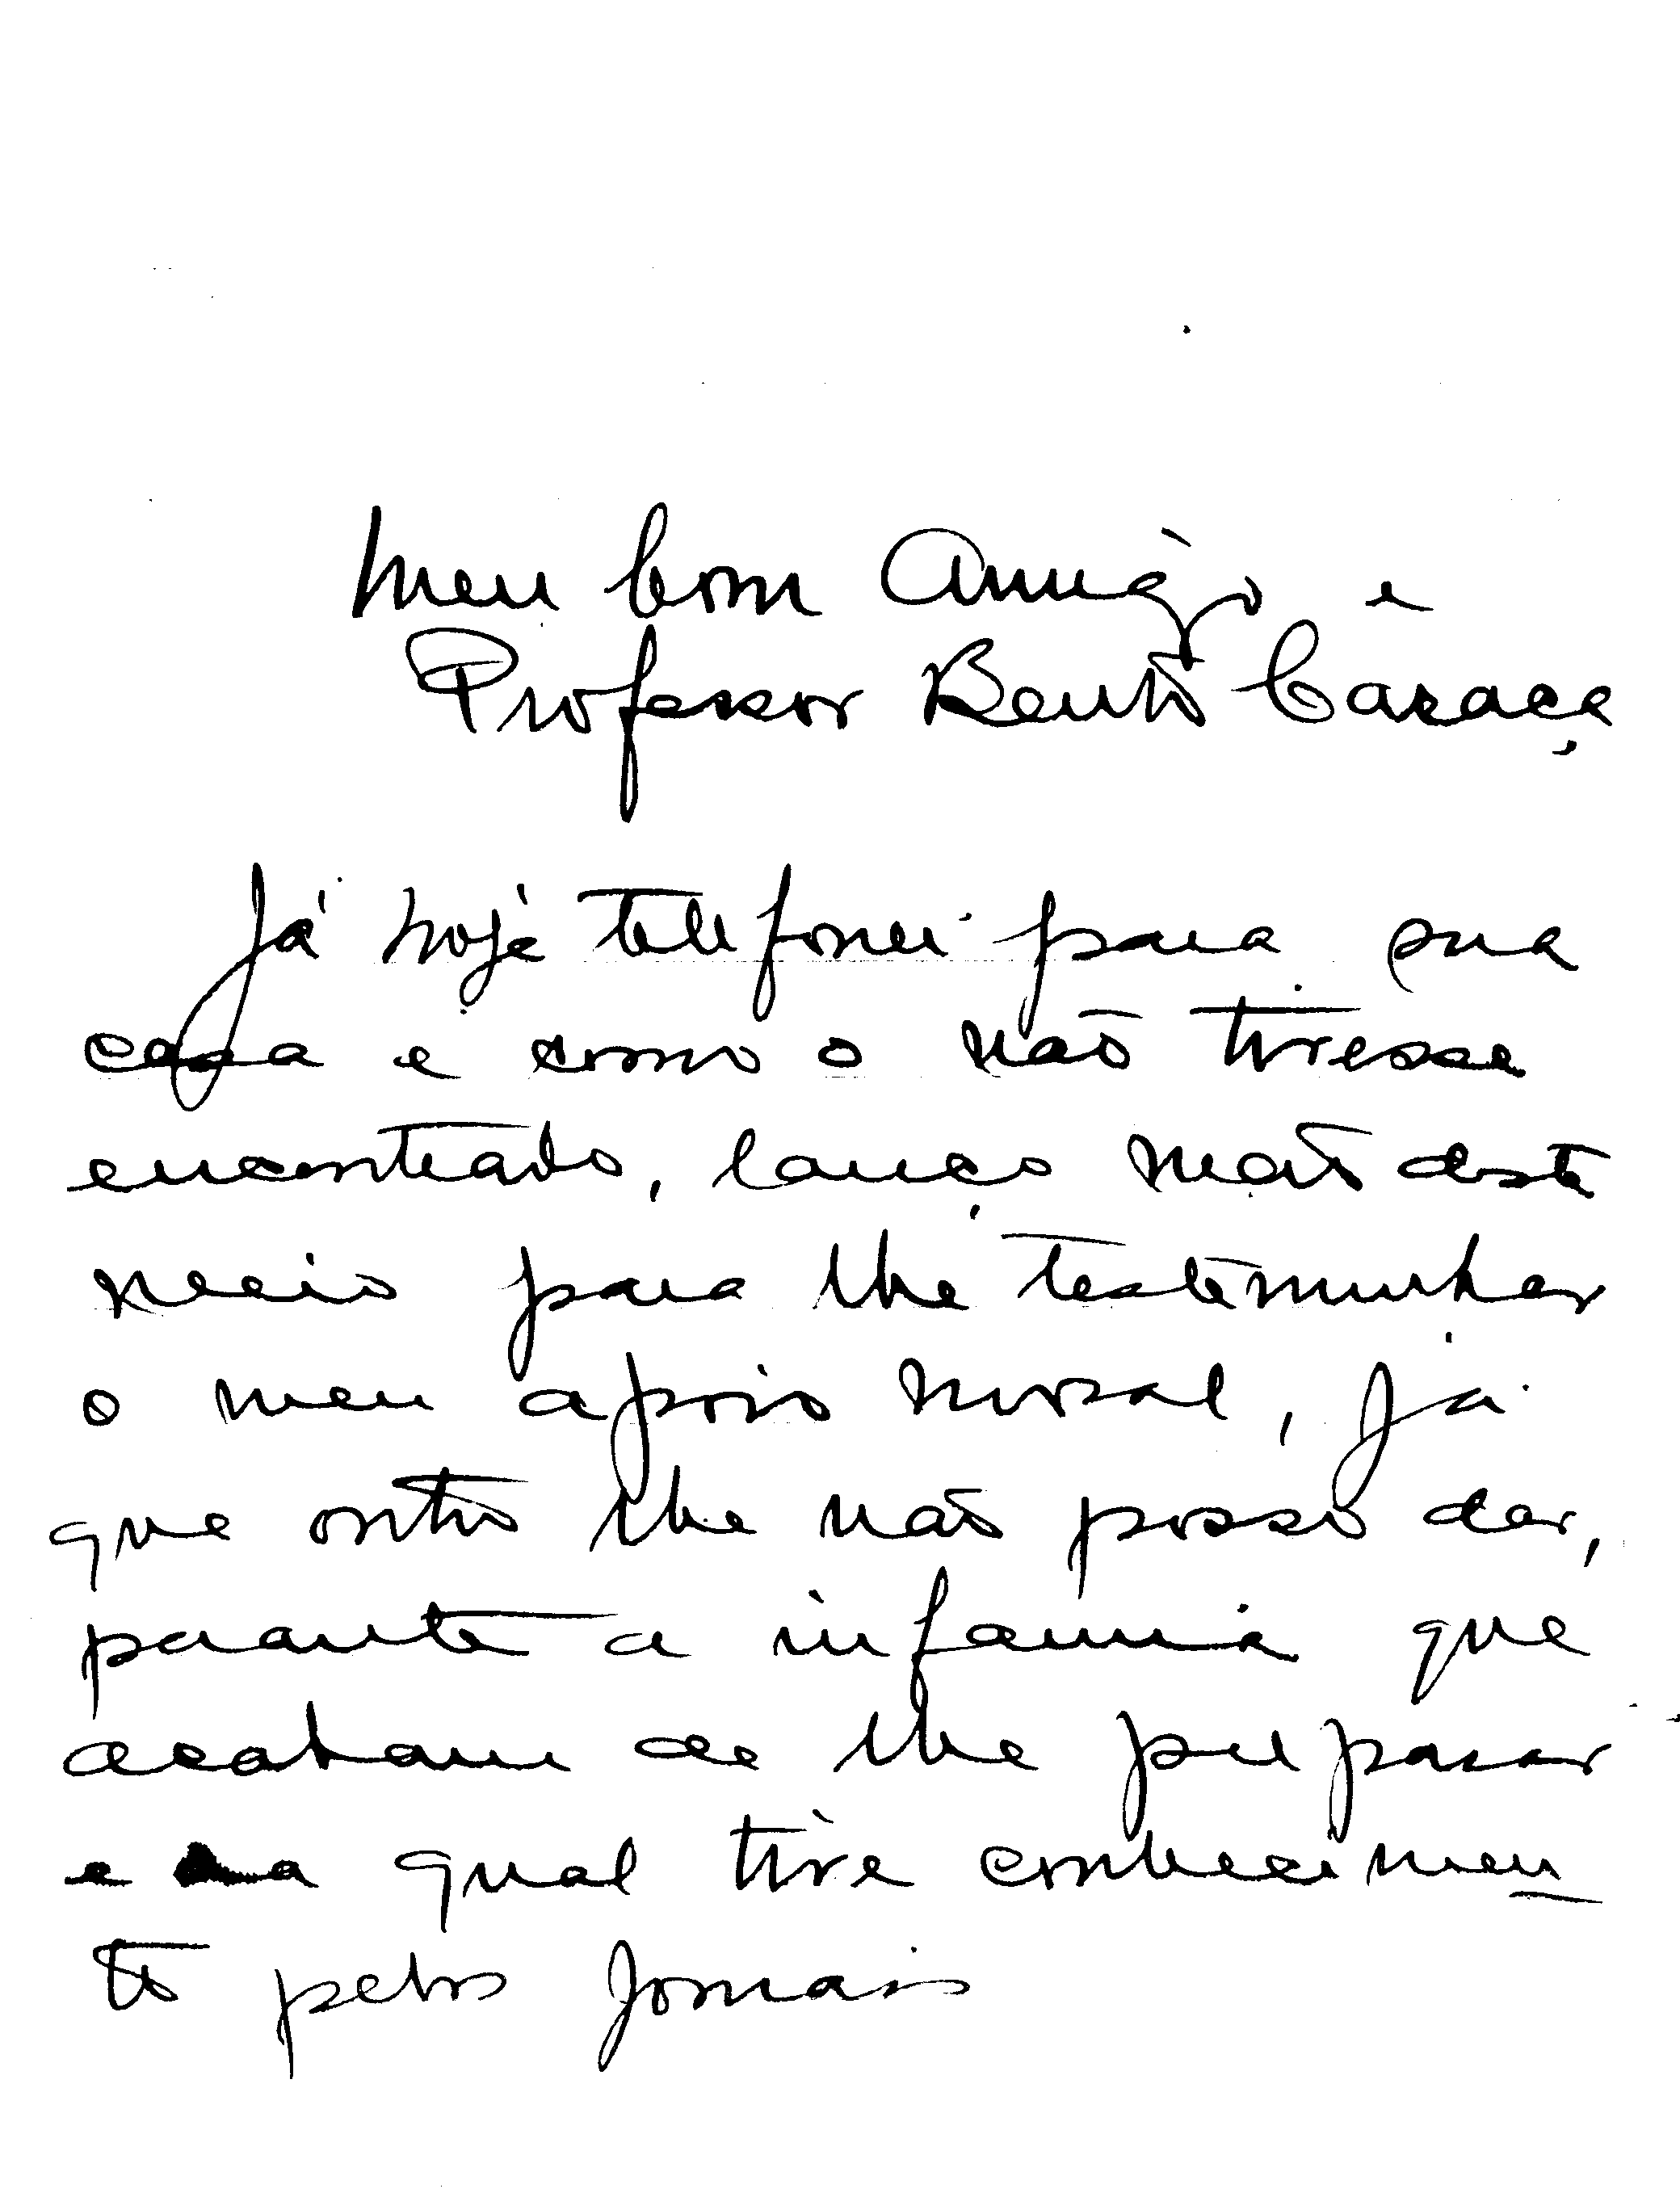 Meu bom Amigo e
Professor Bento Caraça
Já hoje telefonei para sua
casa e como o não tivesse
encontrado, lanço mão deste
meio para lhe testemunhar
o meu apoio moral, já
que outro lhe não posso dar,
perante a infamia que
acabam de lhe preparar
e da qual tive conhecimen
to pelos Jornais